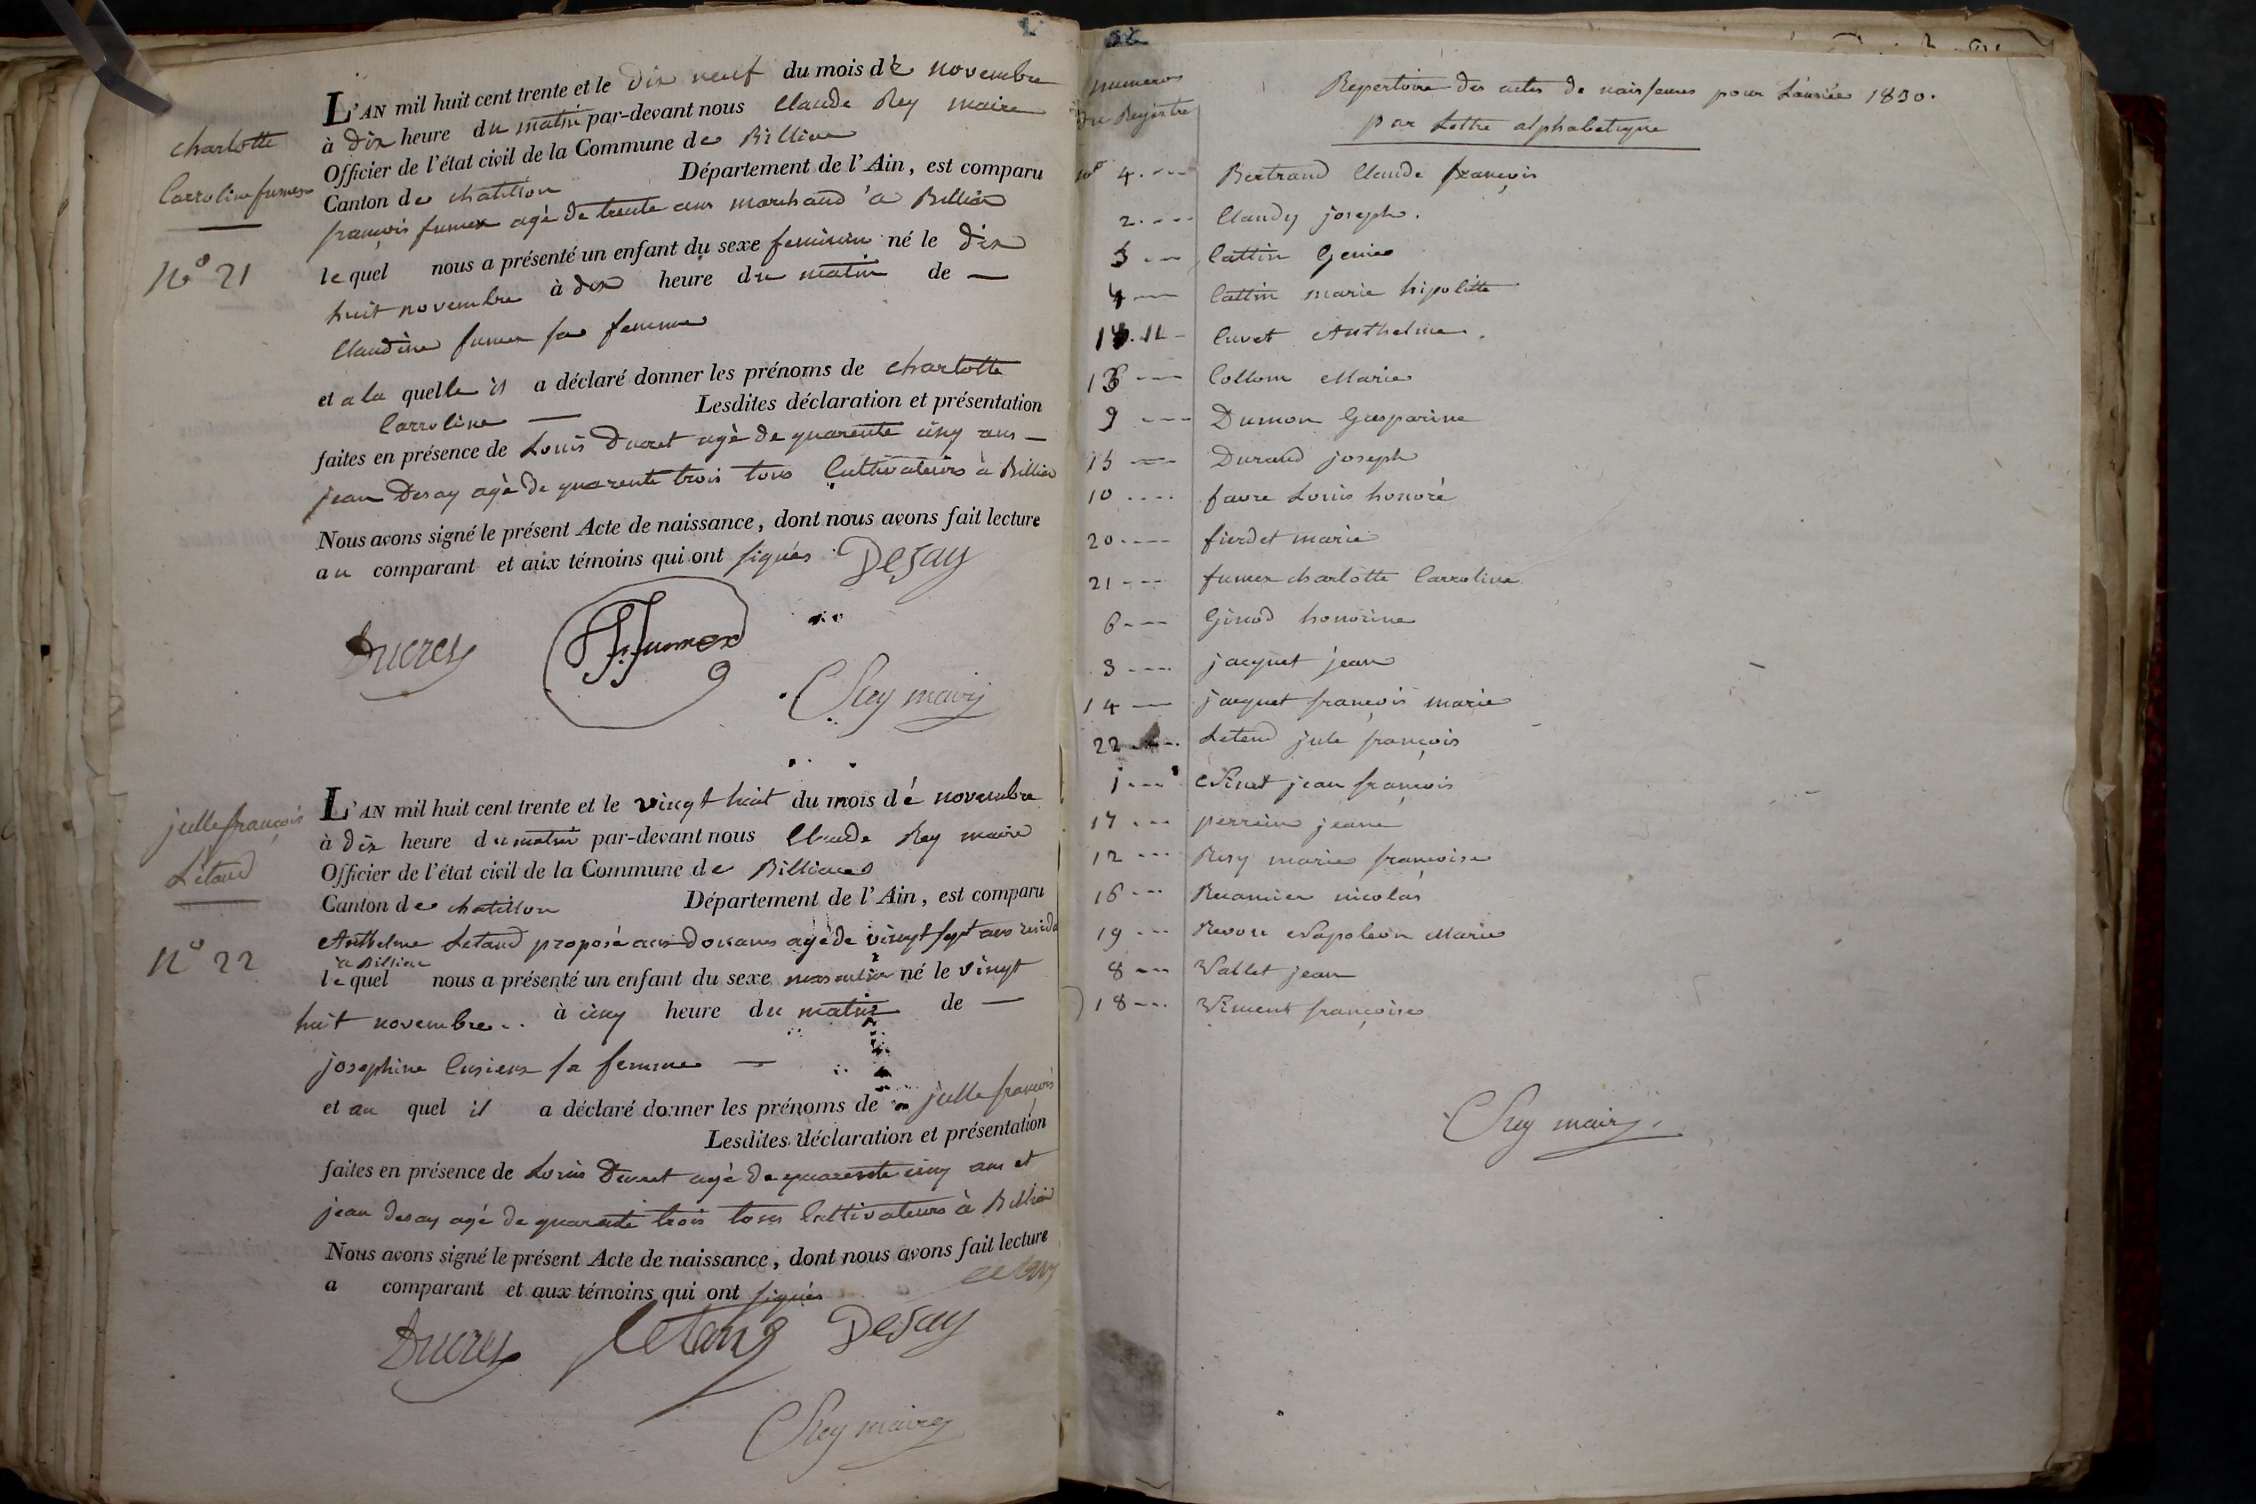 charlotte
Carroline fumex
N° 21
L'AN mil huit cent trente et le dix neuf du mois de novembre
à dix heure du matin par-devant nous Claude Rey maire
Officier de l'état civil de la Commune de Billiat
Canton de chatillon Département de l'Ain, est comparu
françois fumex agé de trente ans marchand à Billiat
lequel nous a présenté un enfant du sexe feminin né le dix
huit novembre à dix heure du matin de —
Claudine fumex sa femme
et a la quelle il a déclaré donner les prénoms de charlotte
Carroline — Lesdites déclaration et présentation
faites en présence de Louis Ducret agé de quarente cinq ans —
jean Desay agé de quarente trois tous Cultivateurs à Billiat
Nous avons signé le présent Acte de naissance, dont nous avons fait lecture
au comparant et aux témoins qui ont signés Desay
Ducret fumex
CRey maire
julle françois
Létand
N° 22
L'AN mil huit cent trente et le vingt huit du mois dé novembre
à dix heure du matin par-devant nous Claude Rey maire
Officier de l'état civil de la Commune de Billiat
Canton de chatillon Département de l'Ain, est comparu
Anthelme Letand proposé aux douanes agé de vingt sept ans resida
à Billiat
lequel nous a présenté un enfant du sexe masculin né le vingt
huit novembre à cinq heure du matin de —
josephine sa femme —
et au quel il a déclaré donner les prénoms de julle françois
Lesdites déclaration et présentation
faites en présence de Louis Ducret agé de quarente cinq ans et
jean desay agé de quarente trois tous Cultivateurs à Billiat
Nous avons signé le présent Acte de naissance, dont nous avons fait lecture
a comparant et aux témoins qui ont signés
Ducret Letang Desay
CRey maire
numeros
du Registre
Repertoire des actes de naissances pour L'année 1830.
par Lettre alphabetique
n° 4 Bertrand Claude françois
2 Claudy joseph.
5 Cattin Genie
Cattin marie hipolitte
11 Cuvet Anthelme.
13 Collom Marie
9 Dumon Gasparine
15 Durand joseph
10 favre Louis honoré
20 fierdet marie
21 fumex charlotte Carroline
6 Ginod honorine
3 jacquet jean
14 jacquet françois marie
22 Letend jule françois
1 jean françois
17 perrein jeane
12 Rey marie françoise
16 nicolas
19 Napoleon Marie
8 Vallet jean
18 françoise
CRey maire